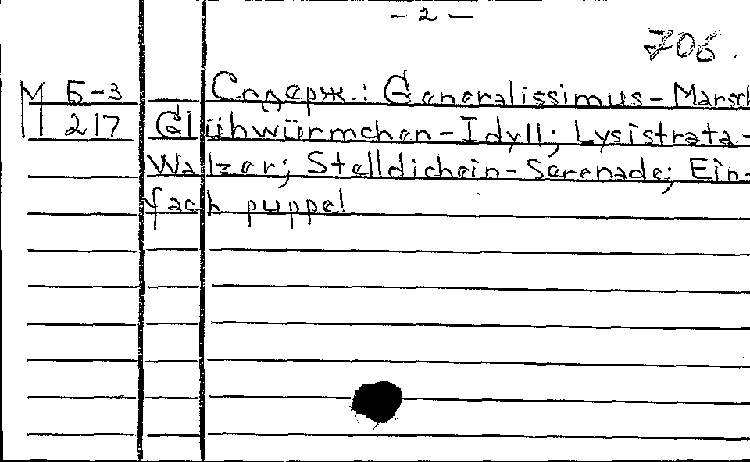 - 2 -
706.
М Б-3 Содерж.: Generalissimus-Marsch
217 Glühwürmchen-Idyll; Lysistrata-
Walzer; Stelldichein-Serenade; Ein-
fach puppe!